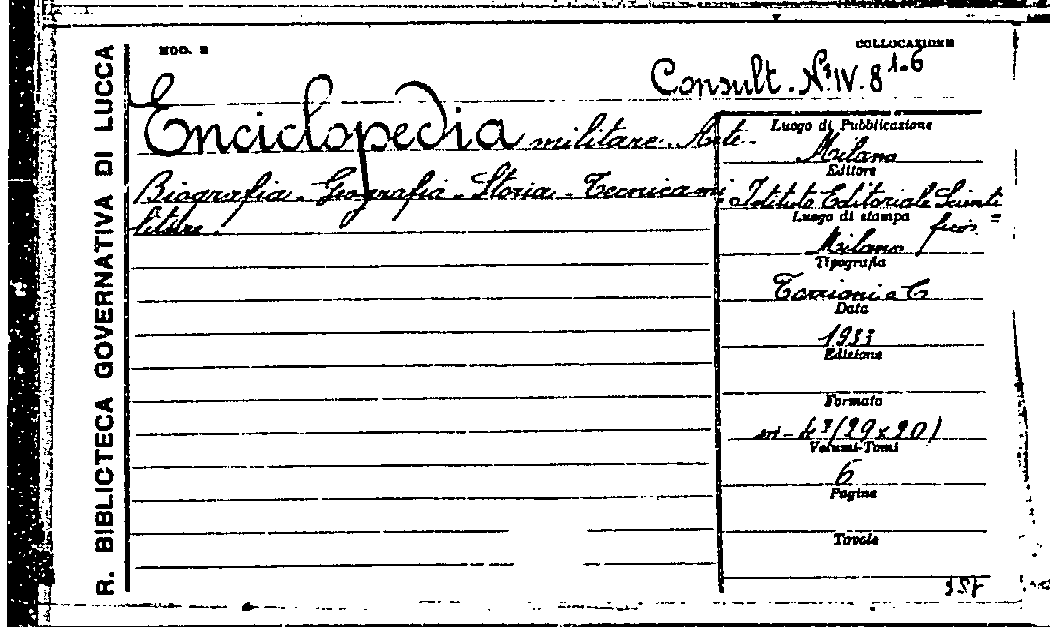 MOD. B
COLLOCAZIONE
Consult. N. IV. 8 1-6
R. BIBLIOTECA GOVERNATIVA DI LUCCA
Enciclopedia militare. Arte.
Biografia. Geografia. Storia. Tecnica mi-
litare.
Luogo di Pubblicazione
Milano
Editore
Istituto Editoriale Scienti=
fico
Luogo di stampa
Milano
Tipografia
Torrioni e C
Data
1933
Edizione
Formato
in-4° (29x20)
Volumi-Tomi
6
Pagine
Tavole